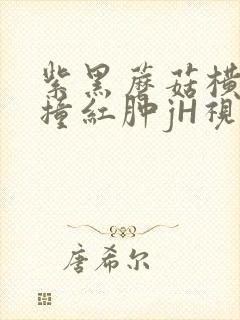 紫黑蘑菇横
撞红肿jH视
唐希尔